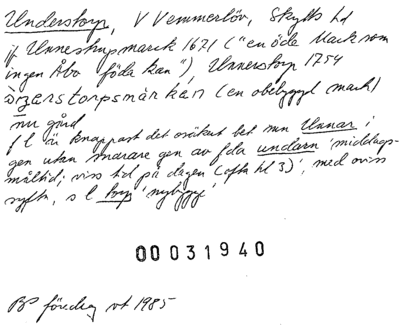 Understorp, V Vemmerlöv, Skytts hd
jb Unnestrupmarck 1671 ("en öde Mark som
ingen Åbo föda kan"), Unnerstorp 1754
ò̱nərstorpsmàrkən (en obebyggd mark)
nu gård
f l är knappast det osäkert bet mn Unnar i
gen utan snarare gen av fda undarn 'middags-
måltid; viss tid på dagen (ofta kl 3)', med oviss
syftn, s l torp 'nybygge'
00031940
BP föredrag vt 1985